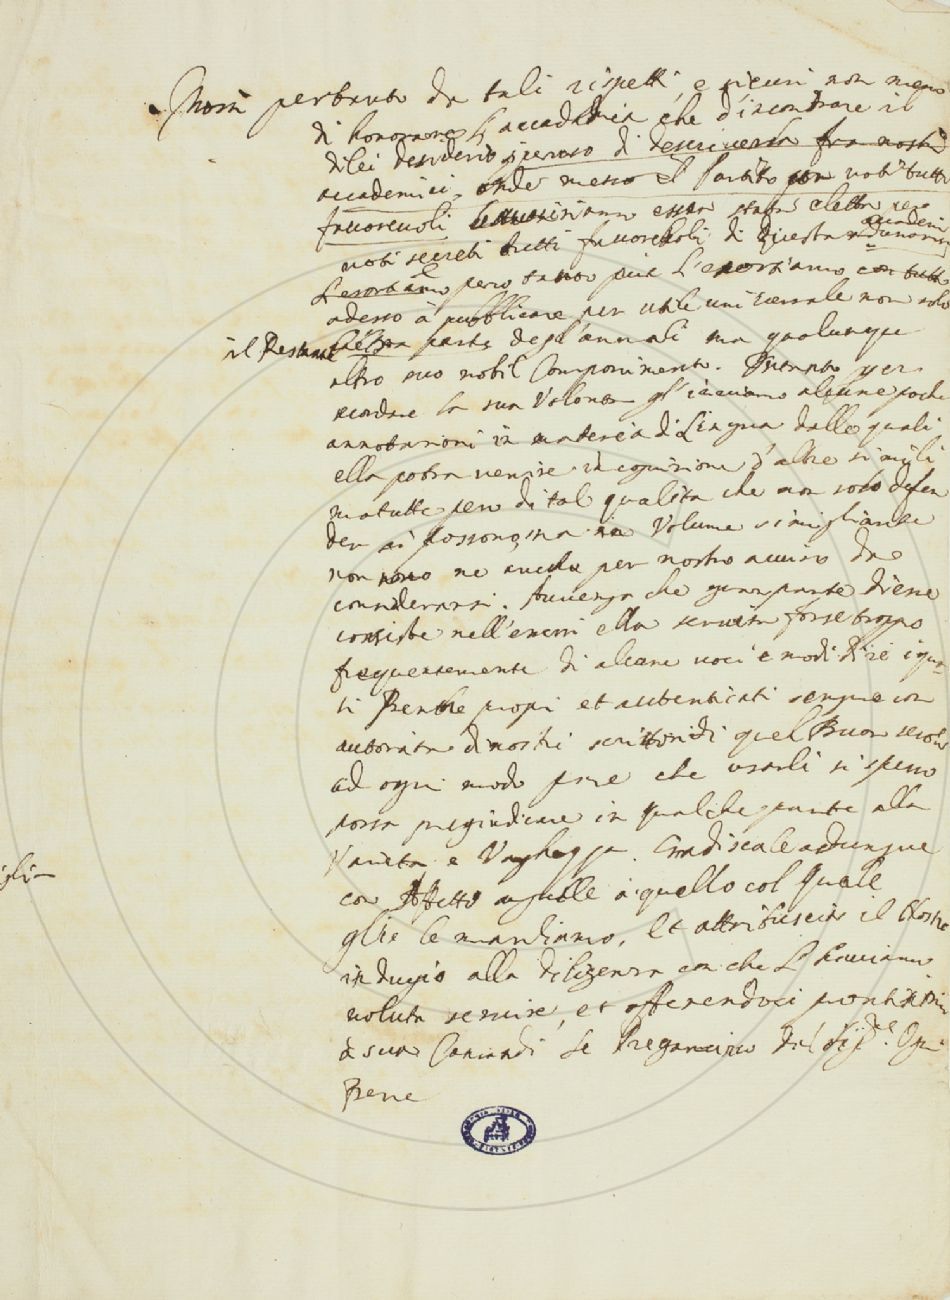 Mossi pertanto da tali rispetti, e sicuri non meno
di honorare l'accademia che d'incontrare il
di lei desiderio di descriverla fra nostri
accademici, onde messo il Partito con voti tutti
favorevoli essere stata eletta per
accademi
voti secreti tutti favorevoli di questa adunanza
L'esortiamo pero tanto più L'esortiamo con tutto
adesso à pubblicare per utile universale non solo
il Restante
parte degl'annali ma qualunque
altro suo nobil Componimento. Intanto per
la sua Volontà gl'inviamo alcune poche
annotazioni in materia di Lingua dalle quali
ella potrà venire in cognizione d'altre simili
ma tutte pero di tal qualità che non solo difen
der si possono, ma in Volume simigliante
non sono ne anche per nostro avviso da
considerarsi. Avvenga che gran parte d'esse
consiste nell'essersi ella servita forse troppo
frequentemente di alcune voci e modi di re i qua-
li benche propri et autenticati sempre con
autorità di nostri scrittori di quel Buon secolo
ad ogni modo pare che usarli si spesso
possa pregiudicare in qualche parte alla
Varietà e Vaghezza. Gradiscale adunque
con Affetto uguale à quello col quale
iglia
glie le mandiamo, et attribuisca il Nostro
indugio alla diligenza con che L'haviamo
voluta servire, et offerendoci prontissimi
à suoi Comandi Le Preghiamo Dal Sig.re Ogni
Bene